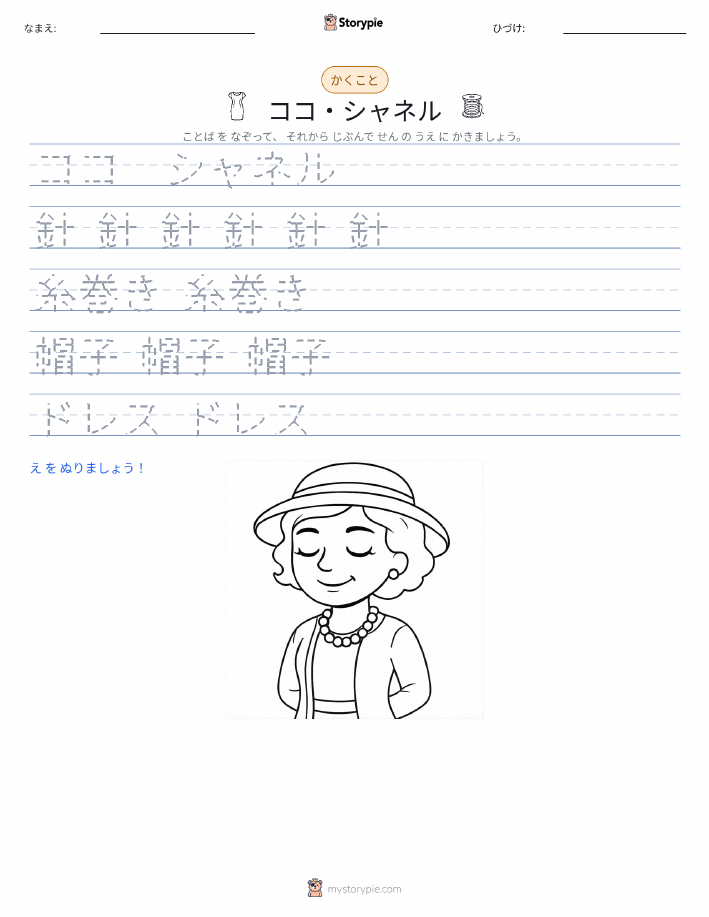 なまえ:
Storypie
ひづけ:
かくこと
ココ・シャネル
ことば を なぞって、 それから じぶんで せん の うえ に かきましょう。
ココ シャネル
針 針 針 針 針 針
糸巻き 糸巻き
帽子 帽子 帽子
ドレス ドレス
え を ぬりましょう！
mystorypie.com